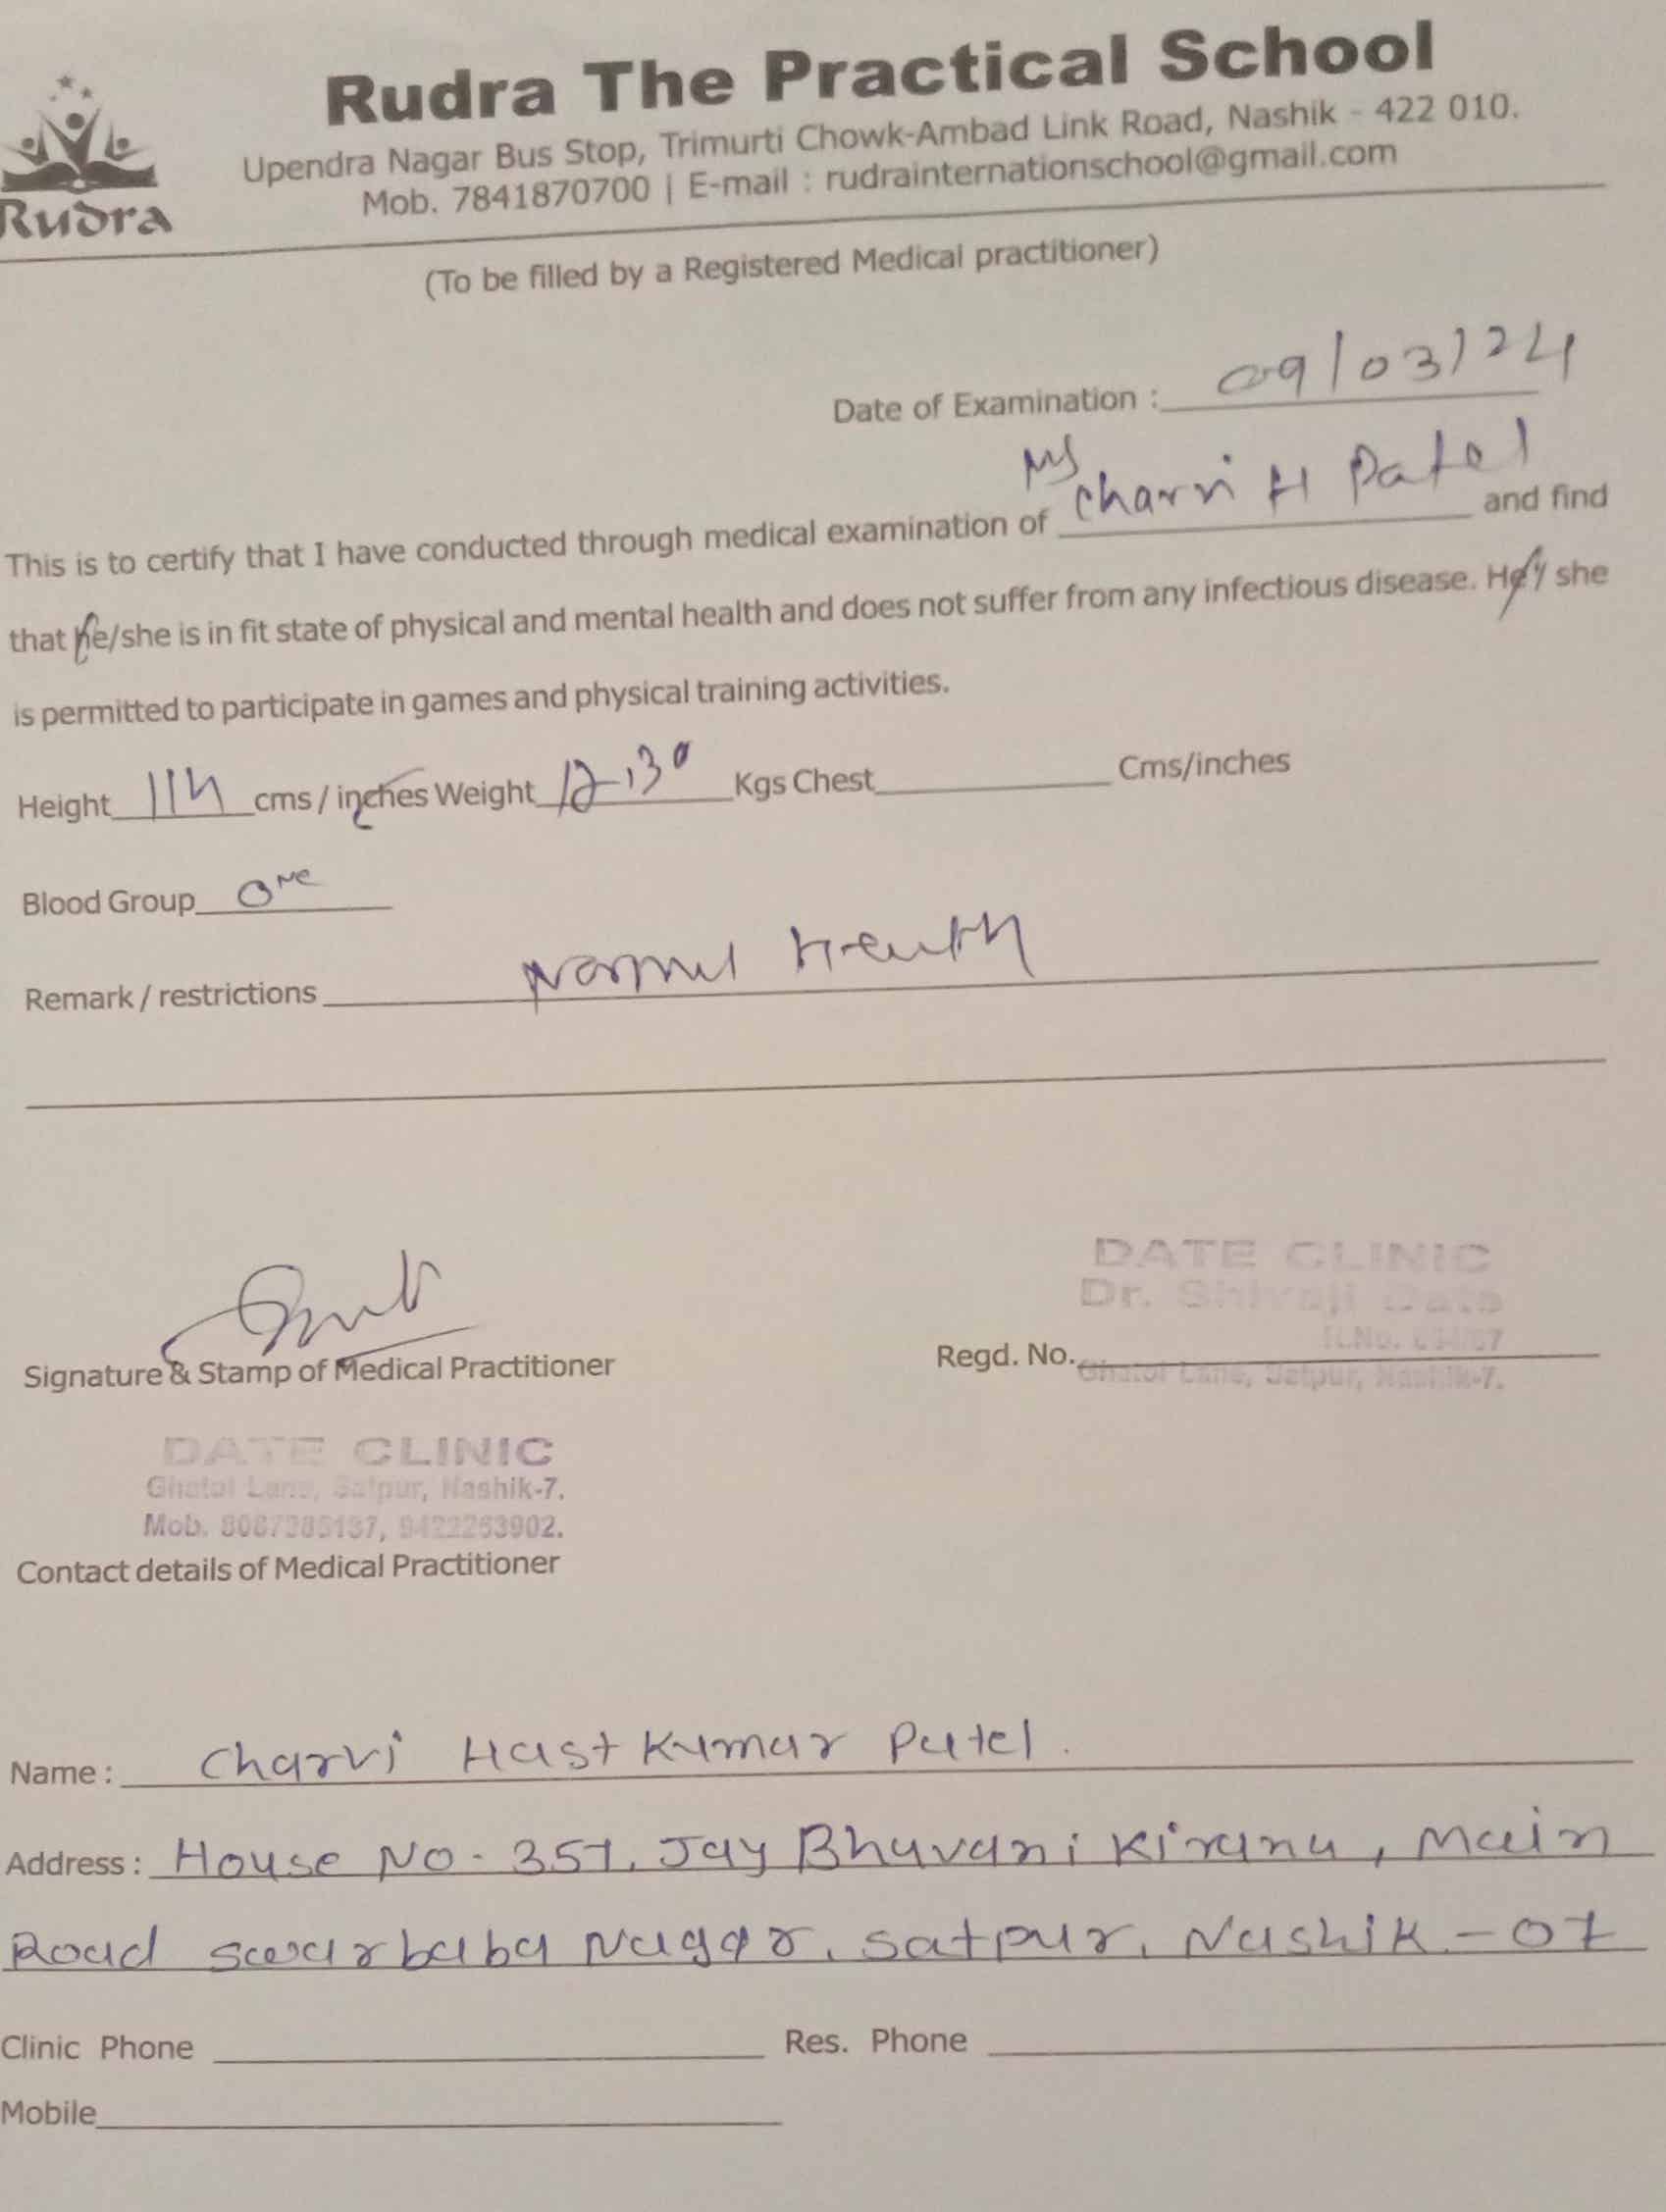 Rudra The Practical School
Upendra Nagar Bus Stop, Trimurti Chowk-Ambad Link Road, Nashik - 422 010.
Mob. 7841870700 | E-mail : rudrainternationschool@gmail.com
Rudra
(To be filled by a Registered Medical practitioner)
Date of Examination : 09/03/24
Ms
This is to certify that I have conducted through medical examination of Charvi H Patel and find
that he/she is in fit state of physical and mental health and does not suffer from any infectious disease. He/ she
is permitted to participate in games and physical training activities.
Height cms / inches Weight Kgs Chest Cms/inches
Blood Group O
Remark / restrictions Normal Health
DATE CLINIC
Dr. Shivaji Date
R.No.
Signature & Stamp of Medical Practitioner Regd. No.
Ghatol Lane, Satpur, Nashik-7.
DATE CLINIC
Ghatol Lane, Satpur, Nashik-7.
Mob.
Contact details of Medical Practitioner
Name : Charvi Hast Kumar Patel.
Address : House No. 357, Jay Bhuvani Kirana, Main
Road Nagar, Satpur, Nashik - 07
Clinic Phone Res. Phone
Mobile